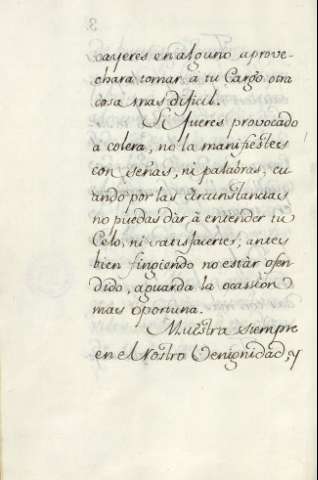 cayeres en alguno aprove-
chara tomar á tu Cargo otra
cosa mas dificil.
Si fueres provocado
a colera, no la manifiestes
con señas, ni palabras, cu
ando por las circunstancias
no puedas dàr à entender tu
Celo, ni satisfacerter, antes
bien fingiendo no estàr ofen
dido, aguarda la ocassion
mas oportuna.
Muestra siempre
en el Rostro Venignidad, y